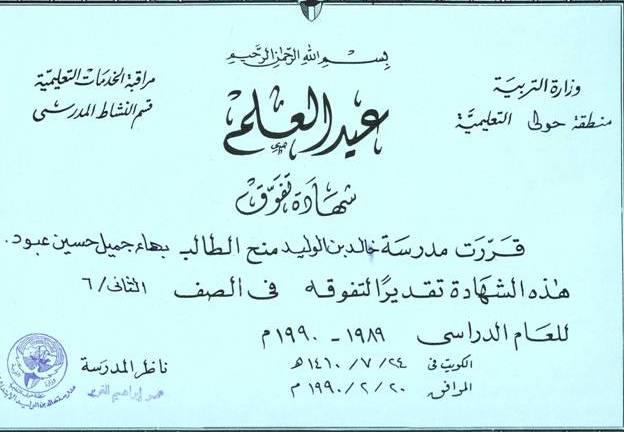 بسم الله الرحمن الرحيم
وزارة التربية
منطقة حولي التعليمية
مراقبة الخدمات التعليمية
قسم النشاط المدرسى
عيد العلم
شهادة تفوق
قررت مدرسة خالد بن الوليد منح الطالب بهاء جميل حسين عبود.
هذه الشهادة تقديرًا لتفوقه فى الصف الثانى / ٦
للعام الدراسى ١٩٨٩ - ١٩٩٠ م
الكويت فى ٢٤ / ٧ / ١٤١٠ هـ
الموافق ٢٠ / ٢ / ١٩٩٠ م
ناظر المدرسة